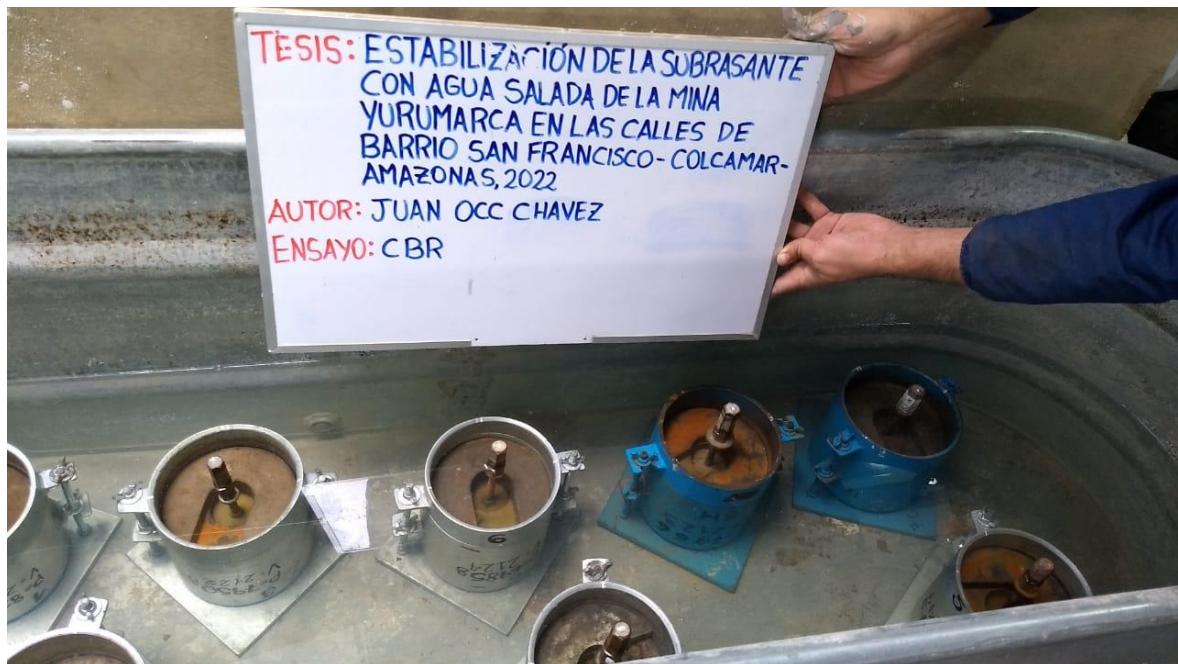 TESIS: ESTABILIZACIÓN DE LA SUBRASANTE
CON AGUA SALADA DE LA MINA
YURUMARCA EN LAS CALLES DE
BARRIO SAN FRANCISCO - COLCAMAR-
AMAZONAS, 2022
AUTOR: JUAN OCC CHAVEZ
ENSAYO: CBR